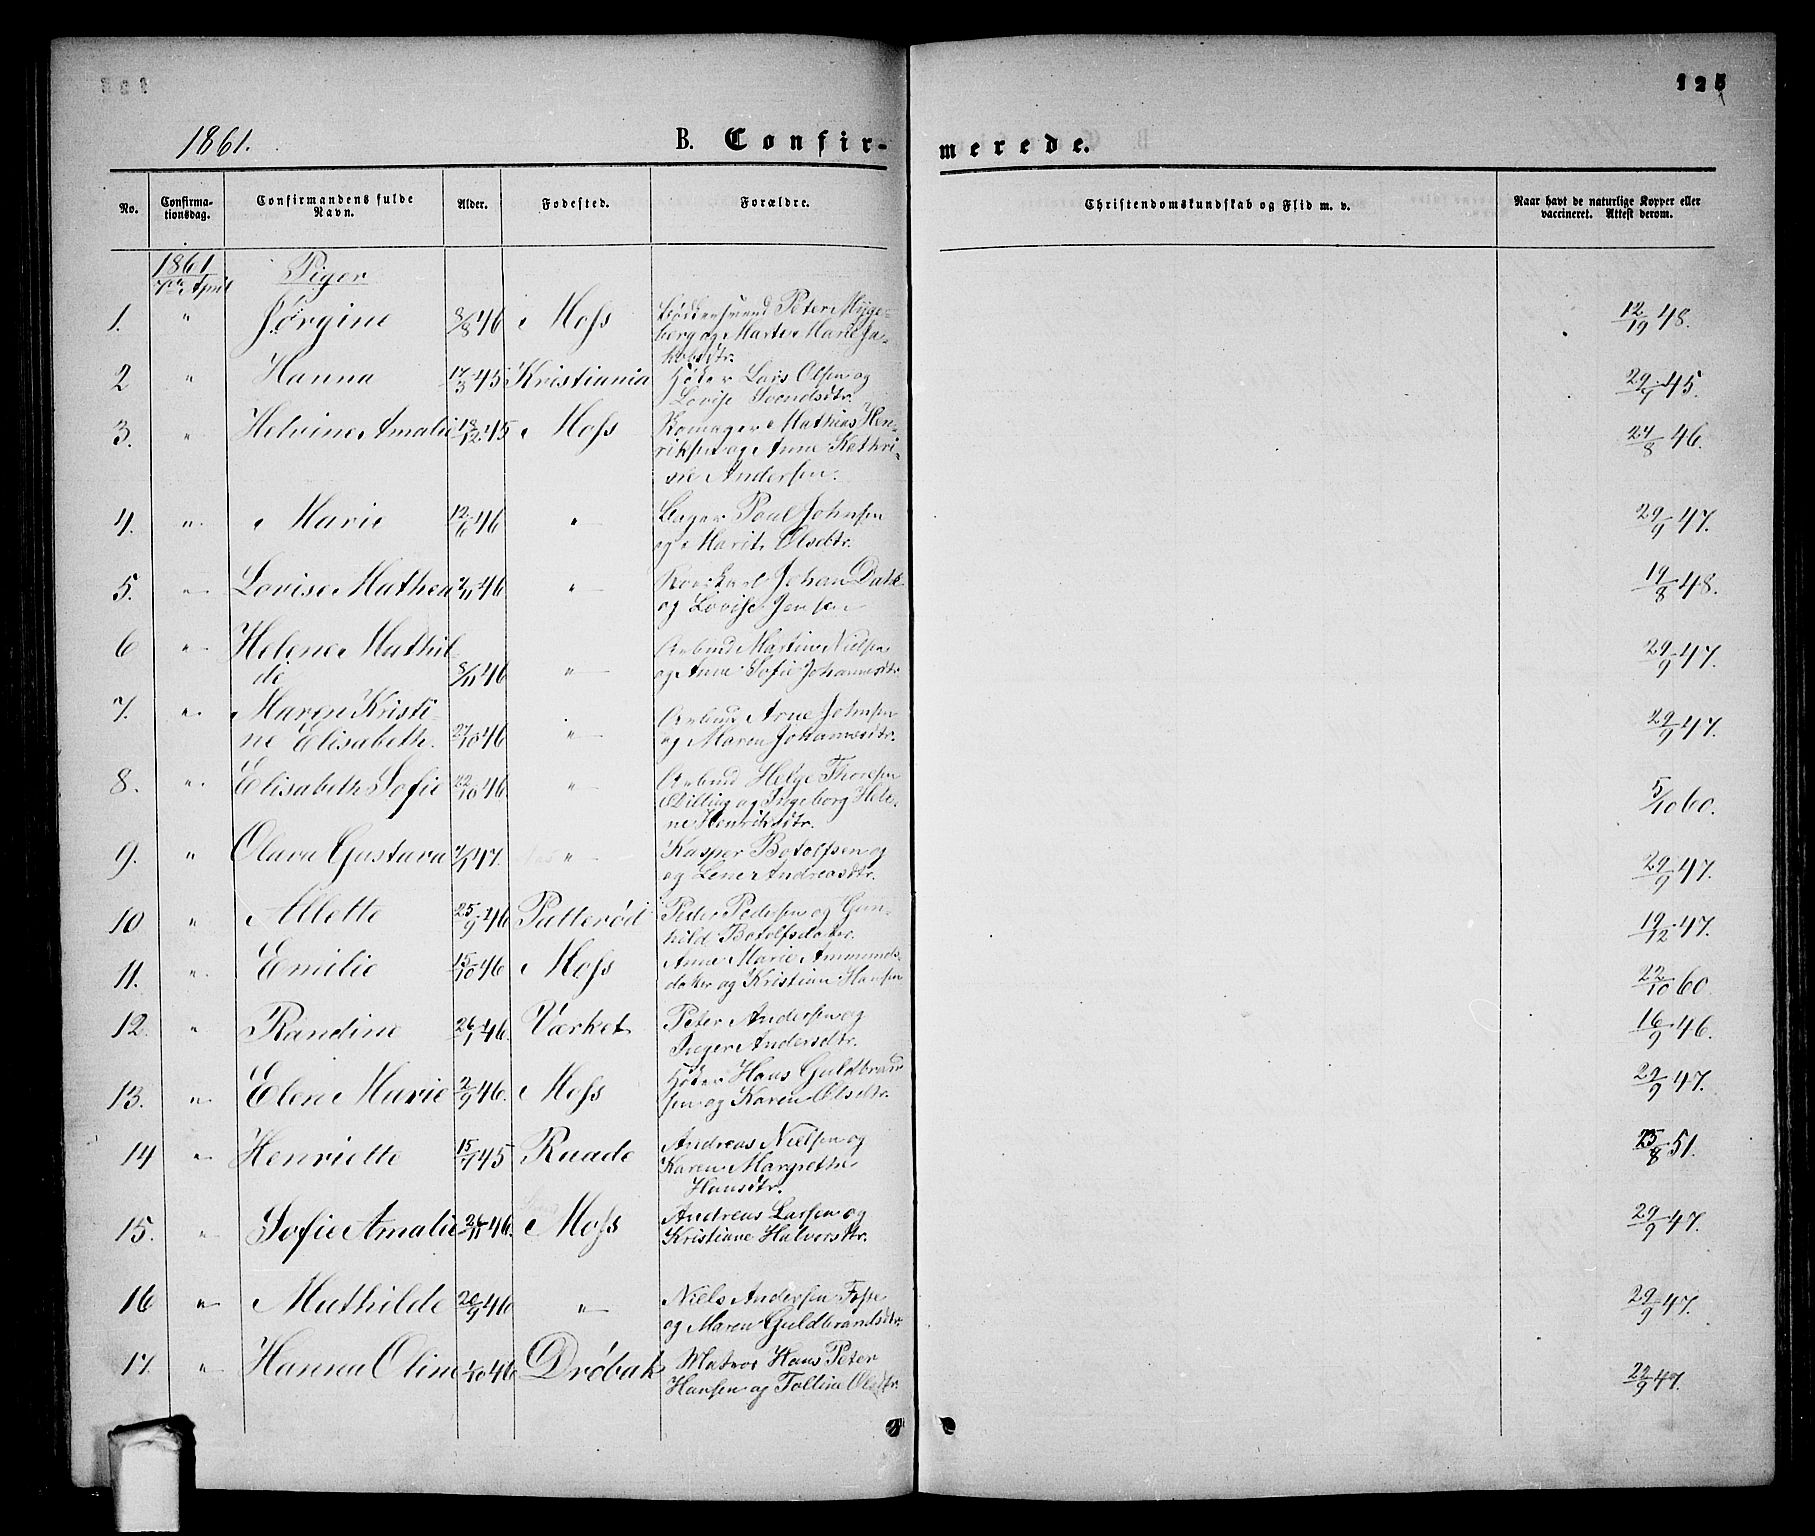 125
1861.
B. Confir-
merede.
No.
Confirma-
tionsdag.
Confirmandens fulde
Navn.
Alder.
Fodested.
Forældre.
Christendomskundskab og Flid m. v.
Naar havt de naturlige Kopper eller
vaccineret. Attest derom.
1861
7de April
Piger
1. " Jørgine 8/8 46 Moss Peter Myge-
berg og Marte Marie Ja-
kobsdtr. 12/19 48.
2 " Hanna 17/3 45 Kristiania Lars Olsen og
Lovise Svendsdtr. 29/9 45.
3. " Helvine Amalie 18/12 45 Moss Mathias Hen-
riksen og Anne Kathri-
ne Andersen. 24/8 46.
4. " Marie 12/6 46 " Poul Johnsen
og Marit Olsdtr. 29/9 47.
5. " Lovise Mathea 2/11 46 " Johan Dahl
og Lovise Jensen 19/8 48.
6 " Helene Mathil-
de 8/11 46 " Arbmd Martin Nielsen
og Anne Sofie Johannesdtr. 29/9 47.
7. " Maren Kristi-
ne Elisabeth. 27/10 46 " Arbmd Arne Johnsen
og Maren Johannesdtr. 29/9 47.
8. " Elisabeth Sofie 22/10 46 " Arbmd Helge Thorsen
Dilling og Ingeborg Hele-
ne Henriksdtr. 5/10 60.
9. " Olava Gustava 2/1 47. " Kasper Botolfsen og
og Lene Andreasdtr. 29/9 47.
10 " Allette 25/9 46 Patterød Peder Pedersen og Gun-
hild Botolfsdater. 19/12 47.
11. " Emilie 15/10 46 Moss Anne Marie Ammunds-
dater og Kristian Hansen 22/10 60.
12. " Randine 26/1 46. Værket Peter Andersen og
Inger Andersdtr. 16/9 46.
13. " Elen Marie 2/9 46. Moss Hans Guldbrand
sen og Karen Olsdtr. 29/9 47.
14 " Henriette 15/7 45 Raade Andreas Nielsen og
Karen Margrethe
Hansdtr. 25/8 51.
15. " Sofie Amalie 26/11 46. Moss Andreas Larsen og
Kristiane Halvorsdtr. 29/9 47.
16 " Mathilde 20/9 46 " Niels Andersen Foss
og Maren Guldbrandsdtr. 29/9 47.
17. " Hanna Oline 1/10 46 Drøbak Matros Hans Peter
Hansen og Toline Olsdtr. 22/9 47.